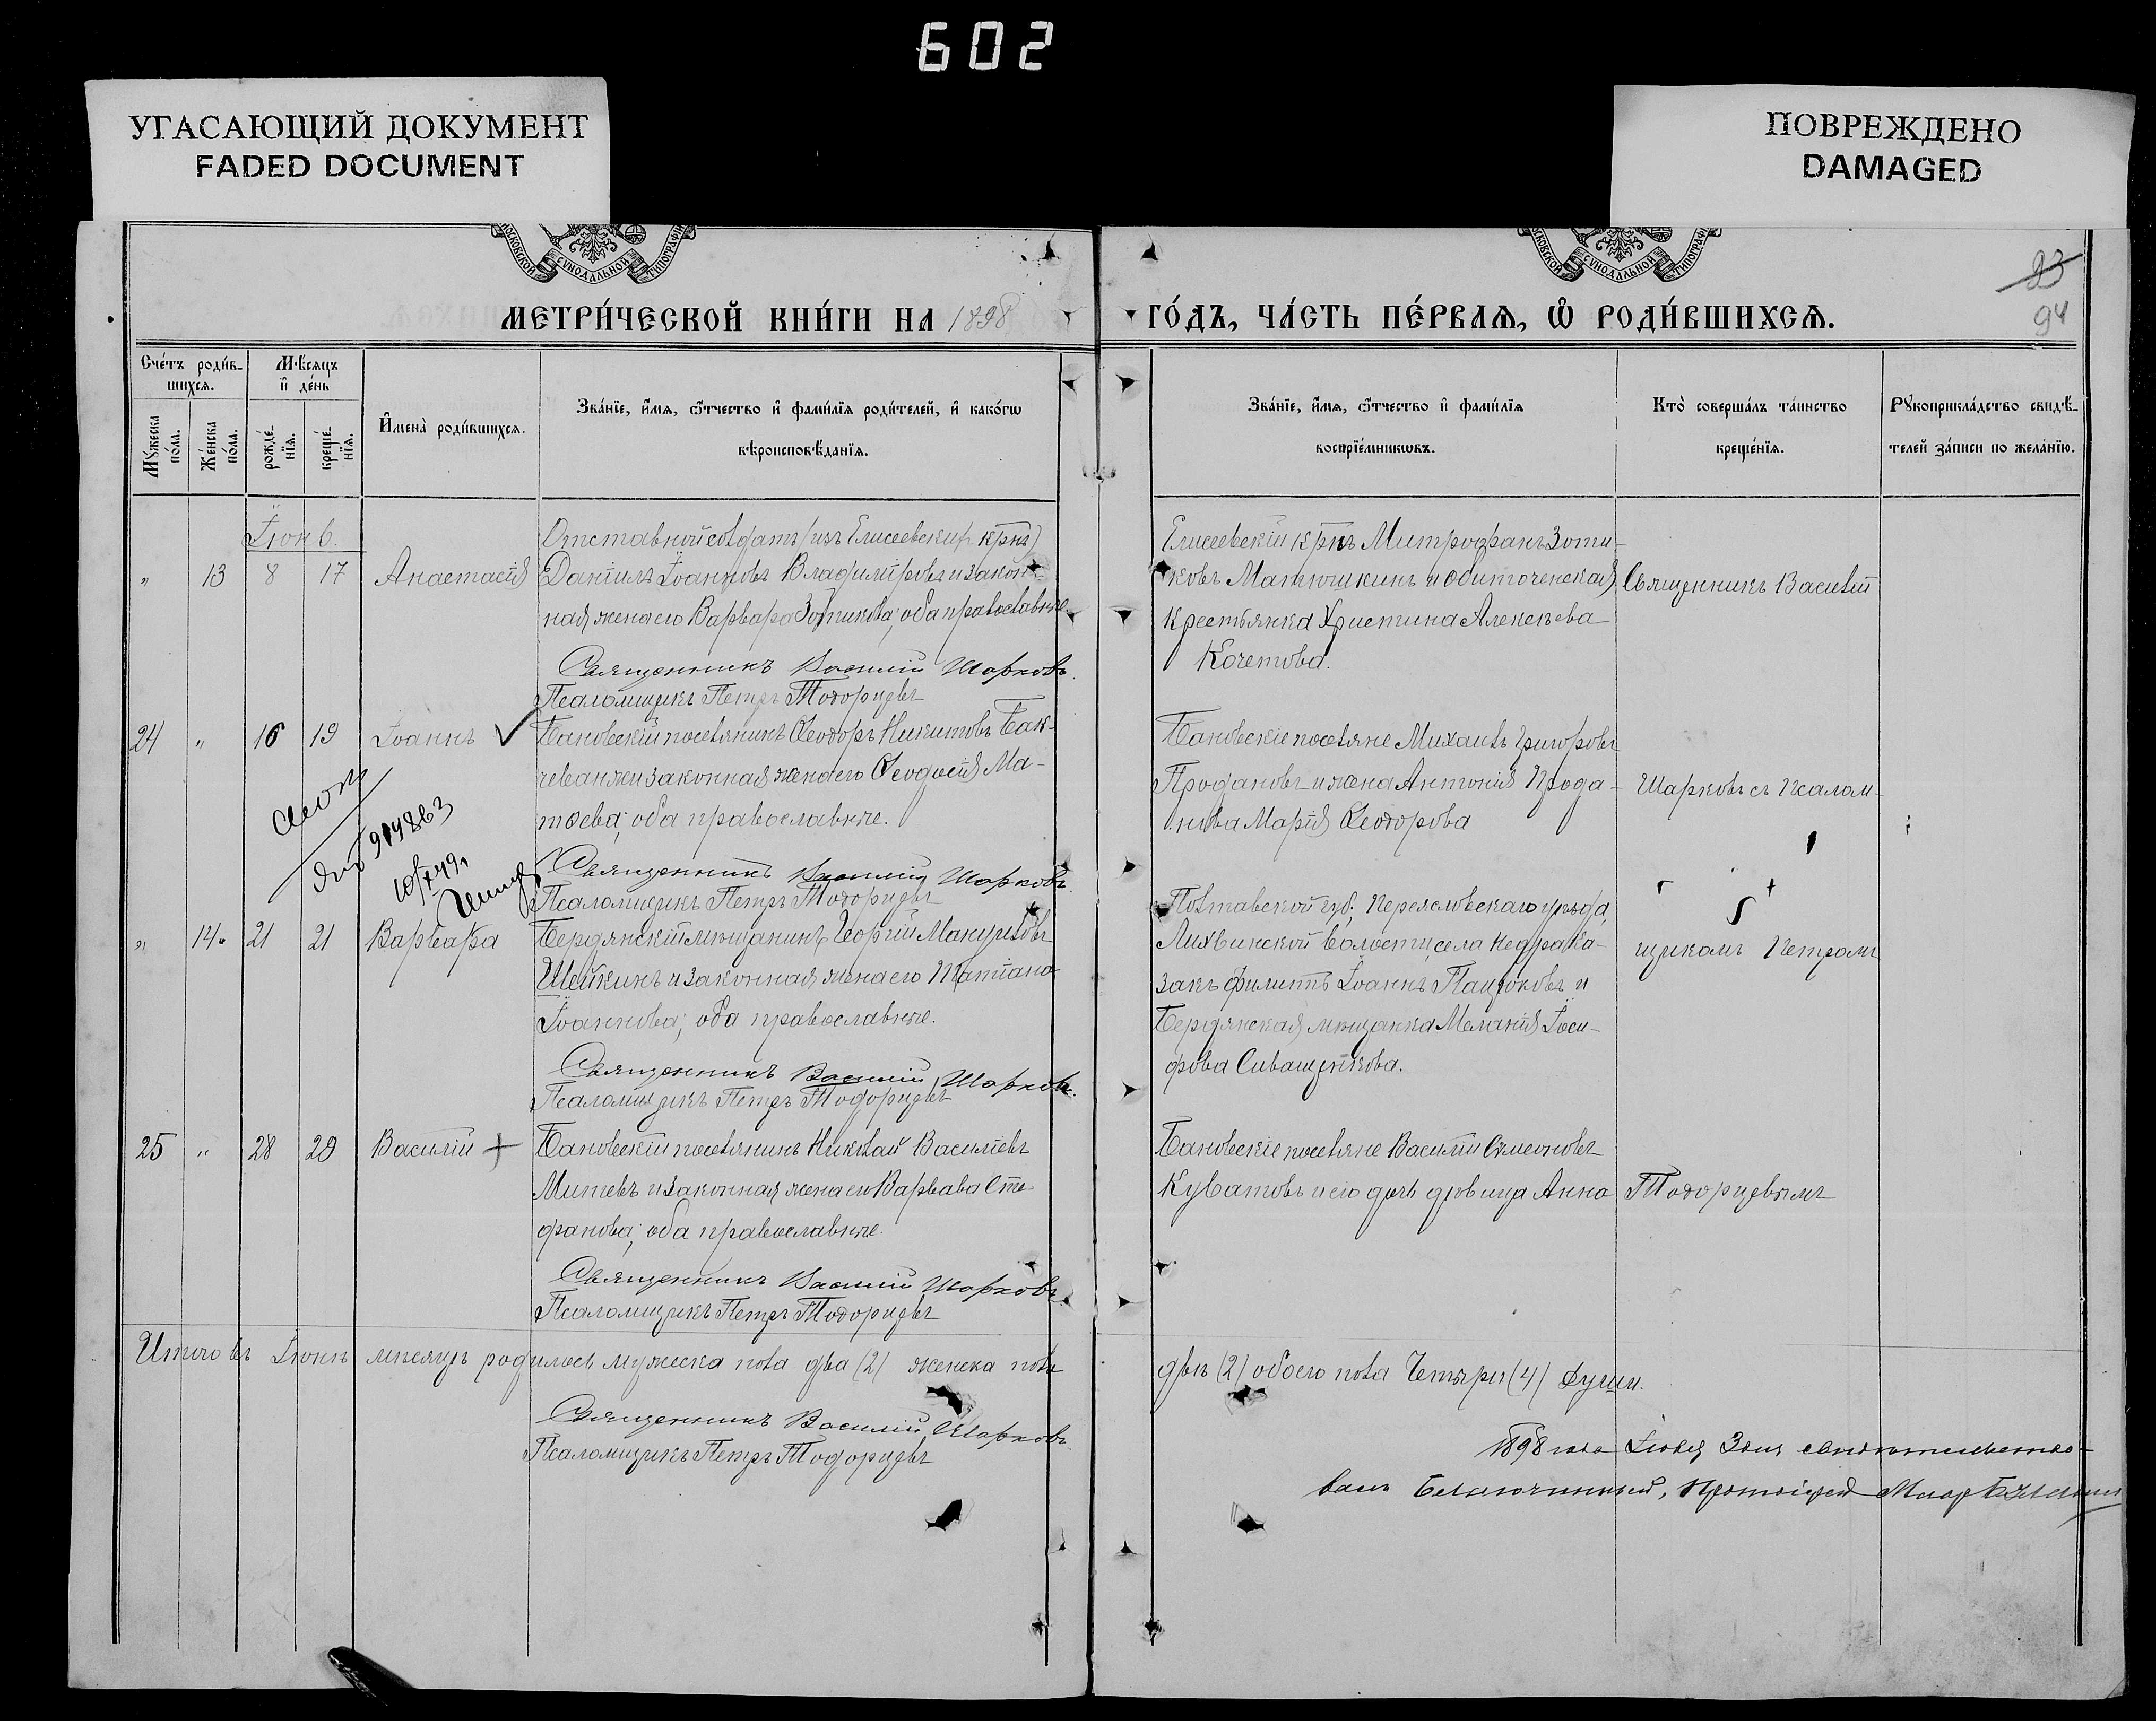 602
УГАСАЮЩИЙ ДОКУМЕНТ
FADED DOCUMENT
ПОВРЕЖДЕНО
DAMAGED
МОСКОВСКОЙ СѴНОДАЛЬНОЙ ТИПОГРАФІИ
МОСКОВСКОЙ СѴНОДАЛЬНОЙ ТИПОГРАФІИ
93
94
МЕТРИ́ЧЕСКОЙ КНИ́ГИ НА 1898
ГО́ДЪ, ЧА́СТЬ ПЕ́РВАѦ, Ѡ҆ РОДИ́ВШИХСѦ.
Сче́тъ роди́в-
шихсѧ.
Мѣ́сѧцъ
и҆ де́нь
Мꙋ́жеска по́ла.
Же́нска по́ла.
рожде́-
нїѧ.
креще́-
нїѧ.
И҆мена̀ роди́вшихсѧ.
Зва́нїе, и҆́мѧ, ѻ҆́тчество и҆ фами́лїѧ роди́телей, и҆ како́гѡ
вѣроисповѣ́данїѧ.
Зва́нїе, и҆́мѧ, ѻ҆́тчество и҆ фами́лїѧ
воспрїе́мникѡвъ.
Кто̀ соверша́лъ та́инство
креще́нїѧ.
Рꙋкоприкла́дство свидѣ́-
телей за́писи по жела́нїю.
Іюнь.
„ 13 8 17 Анастасія
Отставной солдатъ (изъ Елисеевских крнъ)
Даніилъ Іоанновъ Владиміровъ и закон-
ная жена его Варвара Зотикова; оба православные.
Священникъ Василій Шарковъ.
Псаломщикъ Петръ Тодорцевъ
Елисеевскій крнъ Митрофанъ Зоти-
ковъ Матюшкинъ и Обиточенская
крестьянка Христина Алексѣева
Кочетова.
Священникъ Василій
24 „ 16 19 Іоаннъ
Бановскій поселянинъ Ѳеодоръ Никитовъ Бак-
чеванжи законная жена его Ѳеодосія Ма-
тѳева; оба православные.
Священникъ Василій Шарковъ.
Псаломщикъ Петръ Тодорцевъ
Бановскіе поселяне Михаилъ Григоровъ
Продановъ и жена Антонія Прода-
нова Марія Ѳеодорова
Шарковъ съ Псалом-
„ 14. 21 21 Варвара
Бердянскій мѣщанинъ Георгій
Шейкинъ и законная жена его Татіана
Іоаннова; оба православные.
Священникъ Василій Шарковъ.
Псаломщикъ Петръ Тодорцевъ
Полтавской губ; Переясловскаго уѣзда,
волости, села Недра ка-
закъ Филиппъ Іоаннъ и
Бердянская мѣщанка Меланія Іоси-
фова Сиващенкова.
щикомъ Петромъ
25 „ 28 29 Василій
Бановскій поселянинъ Николай Василіевъ
Митевъ и законная жена его Варвава Сте-
фанова; оба православные.
Священникъ Василій Шарковъ.
Псаломщикъ Петръ Тодорцевъ
Бановскіе поселяне Василій Симеоновъ
Кулатовъ и его дочь дѣвица Анна
Тодорцевымъ
Итого въ Іюнѣ мѣсяцѣ родилось мужеска пола два (2) женска пола
двѣ (2) обоего пола Четыри (4) души.
Священникъ Василій Шарковъ.
Псаломщикъ Петръ Тодорцевъ
1898 года Іюля 3 дня свидѣтельство-
валъ Благочинный, Протоіерей